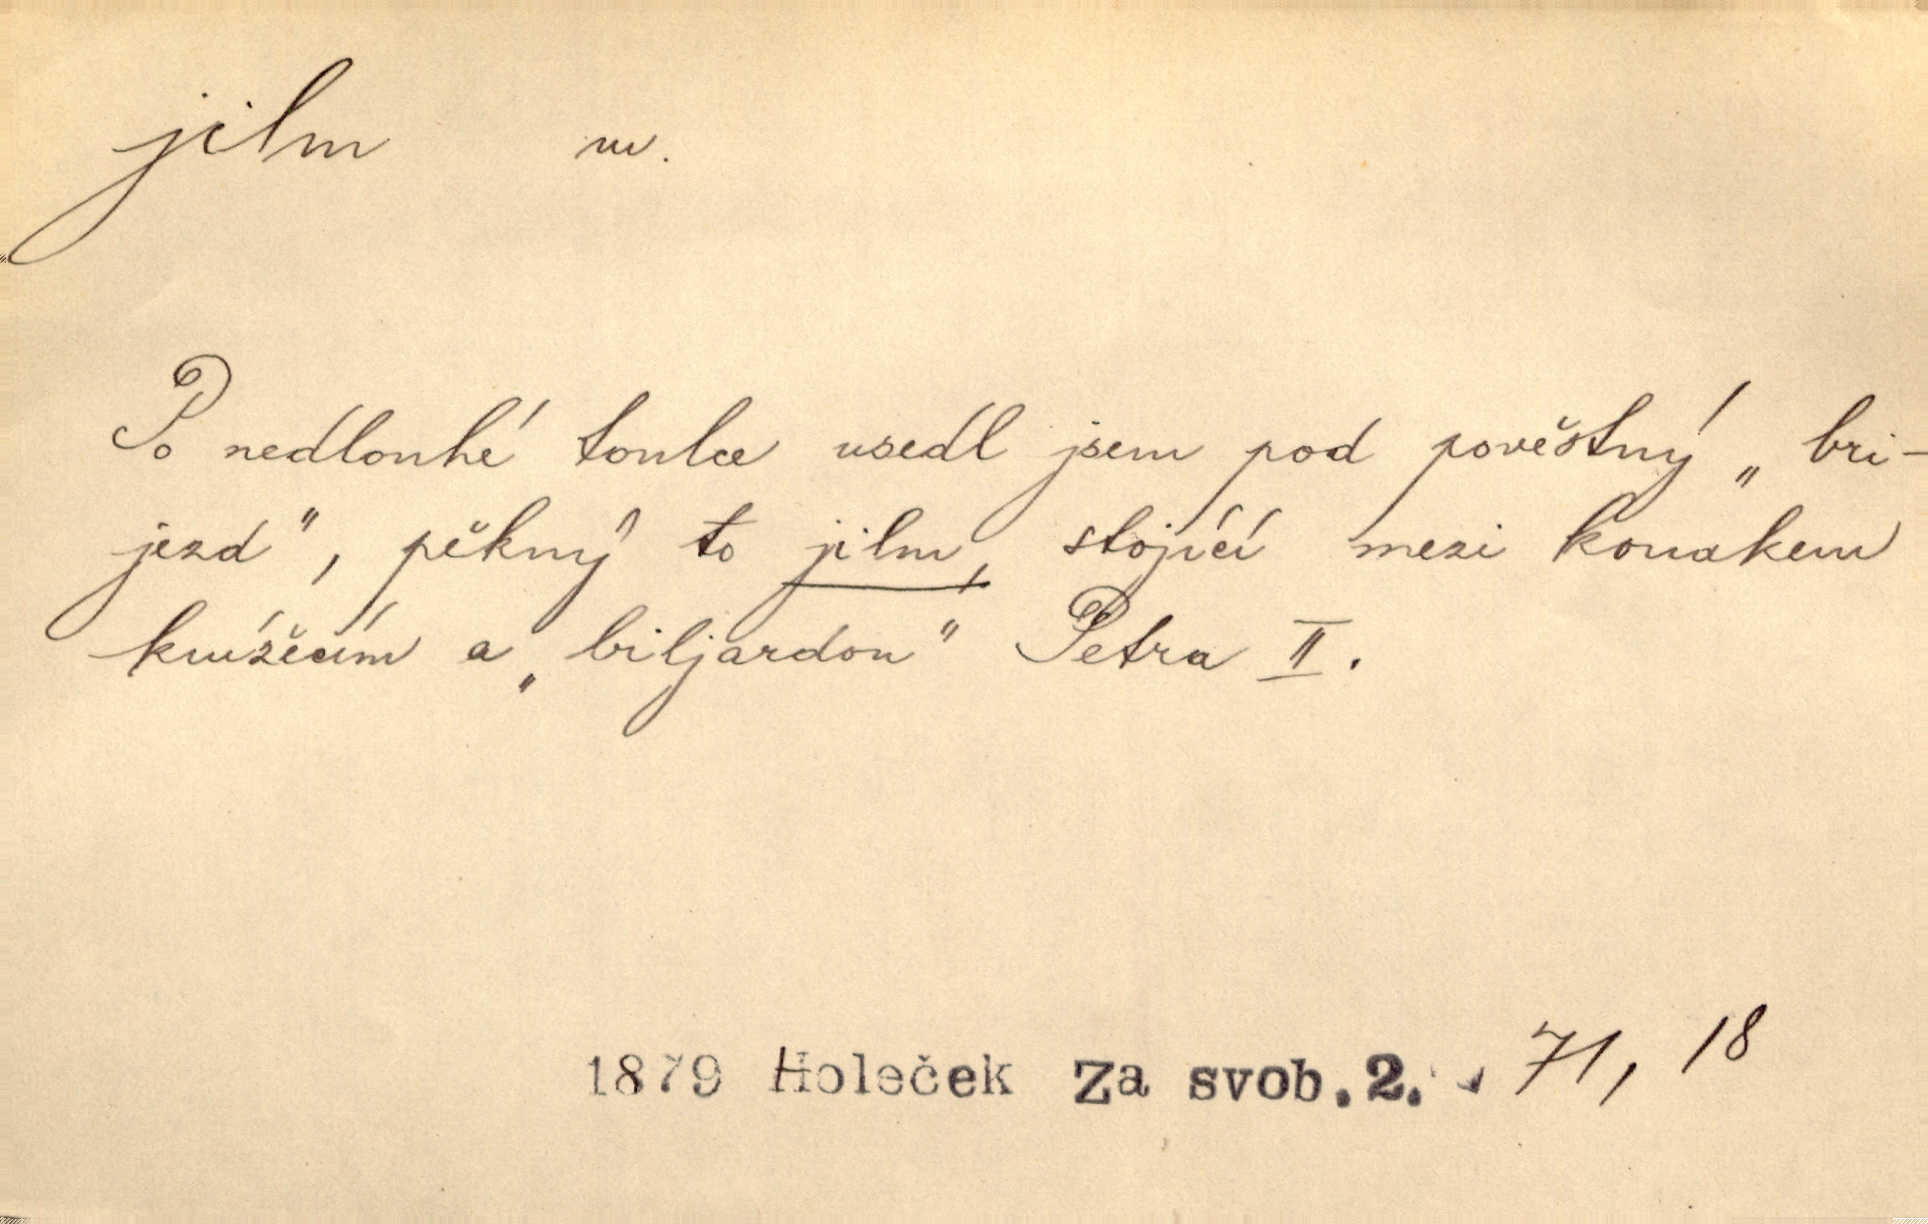 jilm m.
Po nedlouhé toulce usedl jsem pod pověstný „bri-
jezd", pěkný to jilm, stojící mezi konakem
knížecím a „biljardou" Petra II.
1879 Holeček Za svob. 2. 71, 18